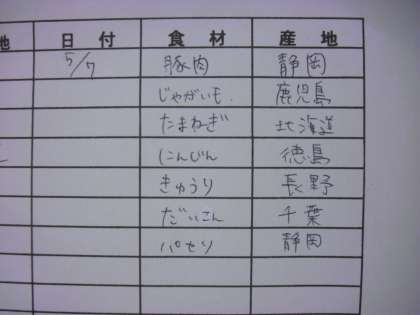 地 日付 食材 産地
5/7 豚肉 静岡
じゃがいも. 鹿児島
たまねぎ 北海道
にんじん 徳島
きゅうり 長野
だいこん 千葉
パセリ 静岡